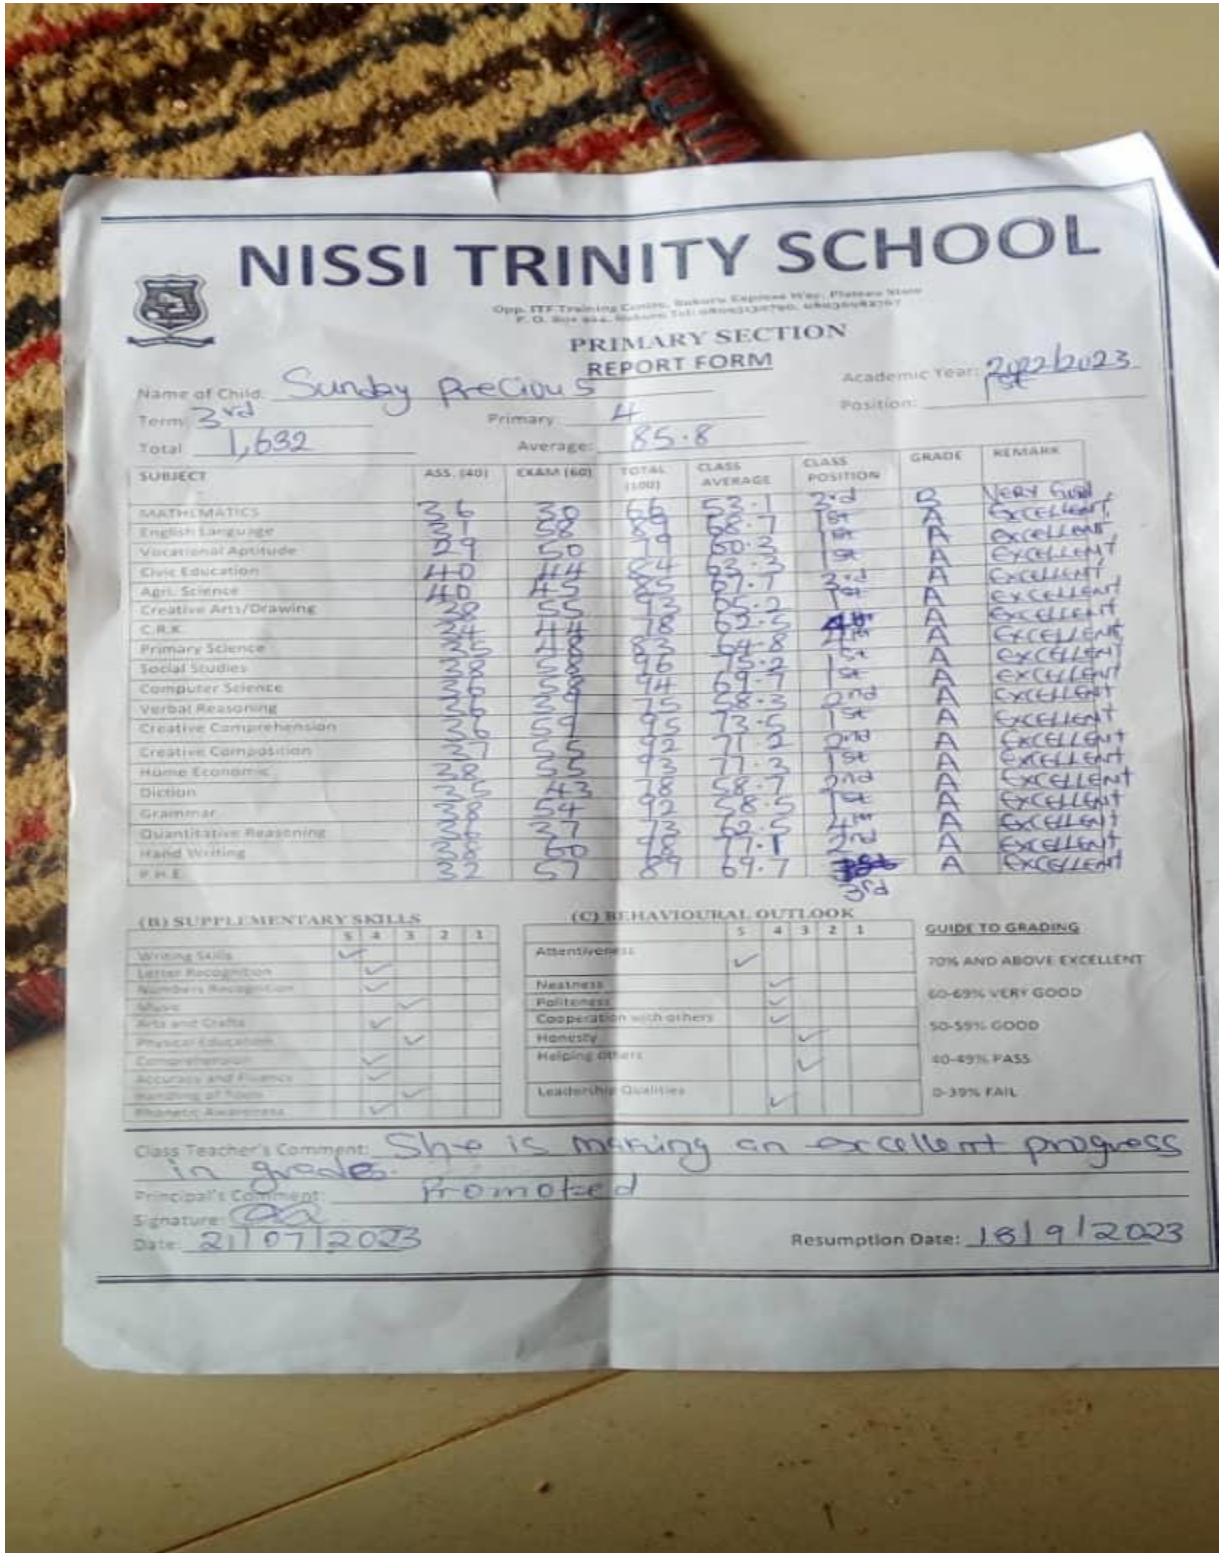 NISSI TRINITY SCHOOL
Opp. ITF Training Centre, Bukuru Express Way, Plateau State
P. O. Box Bukuru Tel:
PRIMARY SECTION
REPORT FORM
Name of Child: Sunday Precious Academic Year: 2022/2023
Term: 3rd Primary 4 Position: 1st
Total 1,632 Average: 85.8
SUBJECT ASS. (40) EXAM (60) TOTAL (100) CLASS AVERAGE CLASS POSITION GRADE REMARK
MATHEMATICS 36 30 66 53.1 3rd B VERY Good
English Language 31 58 89 68.7 1st A EXCELLENT
Vocational Aptitude 29 50 79 60.3 1st A EXCELLENT
Civic Education 40 44 84 63.3 1st A EXCELLENT
Agri. Science 40 45 85 67.7 3rd A EXCELLENT
Creative Arts/Drawing 38 55 93 65.2 1st A EXCELLENT
C.R.K. 34 44 78 62.5 A EXCELLENT
Primary Science 35 48 83 64.8 1st A EXCELLENT
Social Studies 38 58 96 75.2 1st A EXCELLENT
Computer Science 36 58 94 69.7 1st A EXCELLENT
Verbal Reasoning 36 39 75 58.3 2nd A EXCELLENT
Creative Comprehension 36 59 95 73.5 1st A EXCELLENT
Creative Composition 37 55 92 71.2 2nd A EXCELLENT
Home Economic 38 55 93 77.3 1st A EXCELLENT
Diction 35 43 78 58.7 2nd A EXCELLENT
Grammar 38 54 92 58.5 1st A EXCELLENT
Quantitative Reasoning 36 37 73 62.5 A EXCELLENT
Hand Writing 38 60 98 77.1 2nd A EXCELLENT
P.H.E. 32 57 89 69.7 3rd A EXCELLENT
(B) SUPPLEMENTARY SKILLS
5 4 3 2 1
Writing Skills
Letter Recognition
Numbers Recognition
Music
Arts and Crafts
Physical Education
Comprehension
Accuracy and Fluency
Handling of Tools
Phonetic Awareness
(C) BEHAVIOURAL OUTLOOK
5 4 3 2 1
Attentiveness
Neatness
Politeness
Cooperation with others
Honesty
Helping others
Leadership Qualities
GUIDE TO GRADING
70% AND ABOVE EXCELLENT
60-69% VERY GOOD
50-59% GOOD
40-49% PASS
0-39% FAIL
Class Teacher's Comment: She is making an excellent progress
in grades.
Principal's Comment: Promoted
Signature:
Date: 21/07/2023 Resumption Date: 18/9/2023